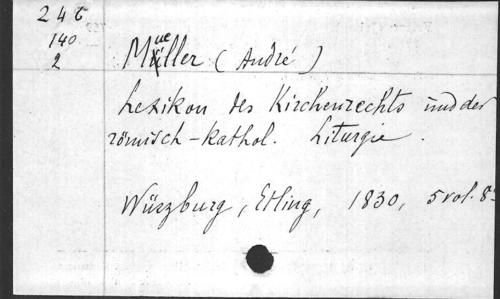 246
140
2
Mueller (André)
Lexikon des Kirchenrechts und der
römisch-kathol. Liturgie.
Würzburg, Etling, 1830, 5 vol. 8°